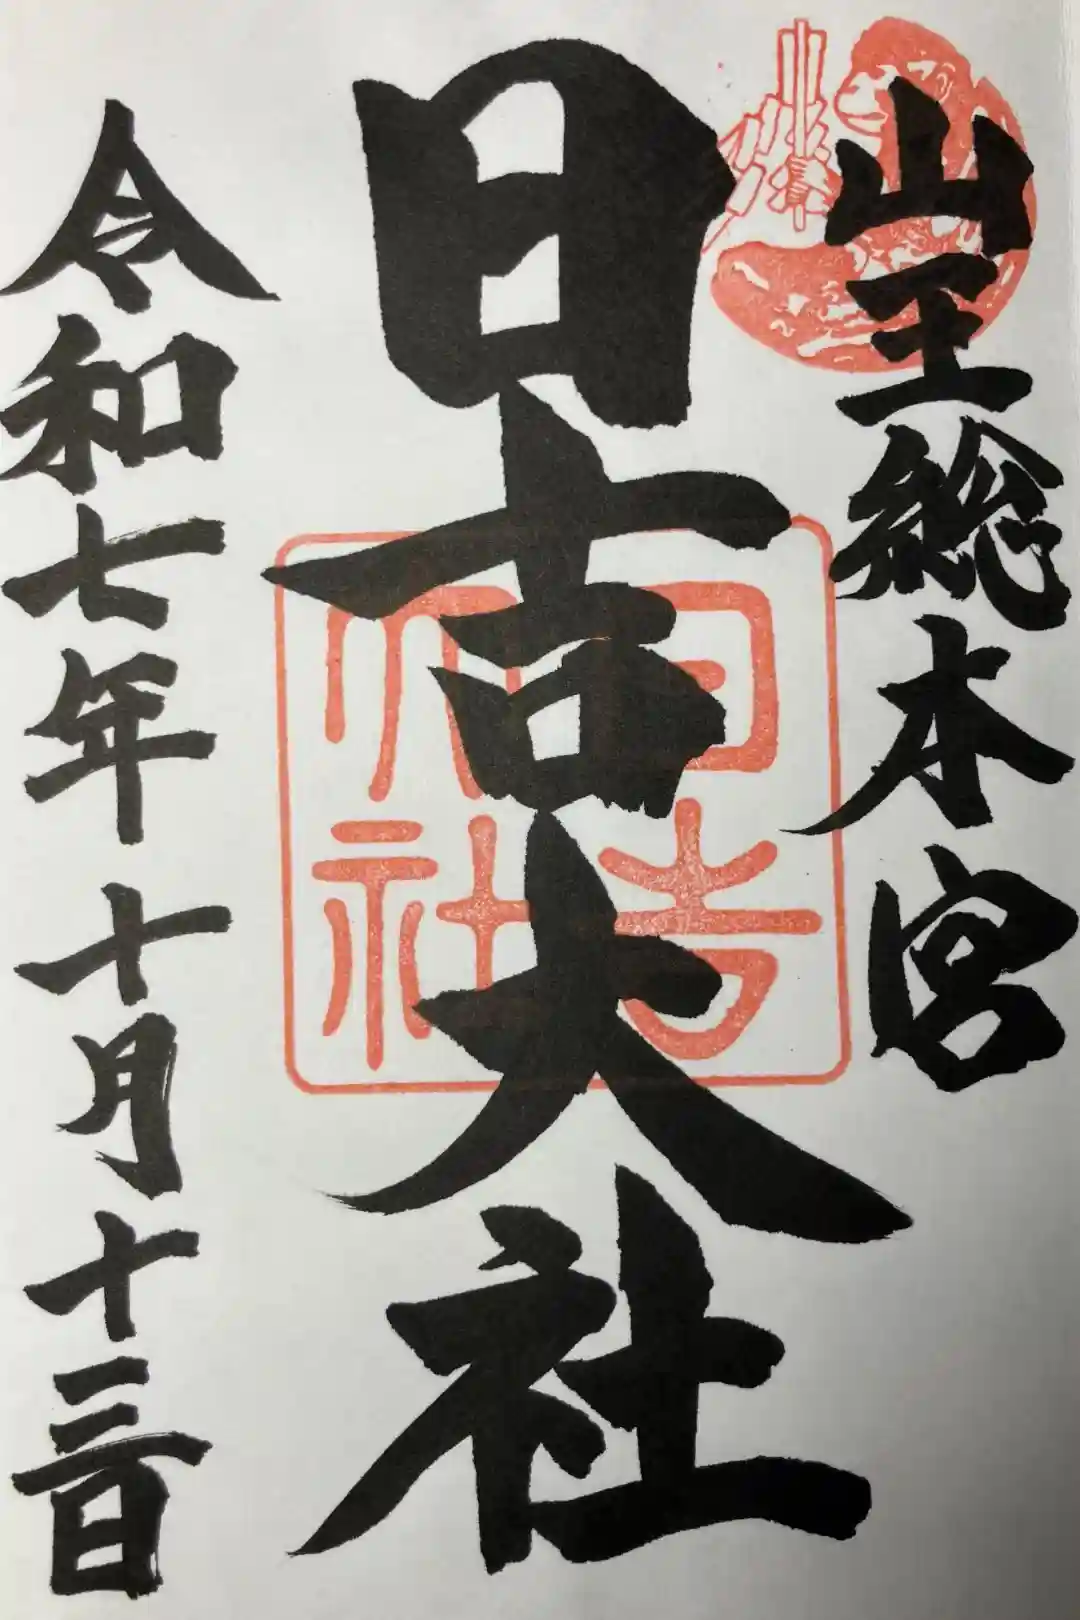 山王総本宮
日吉大社
日吉大社
令和七年十月十三日